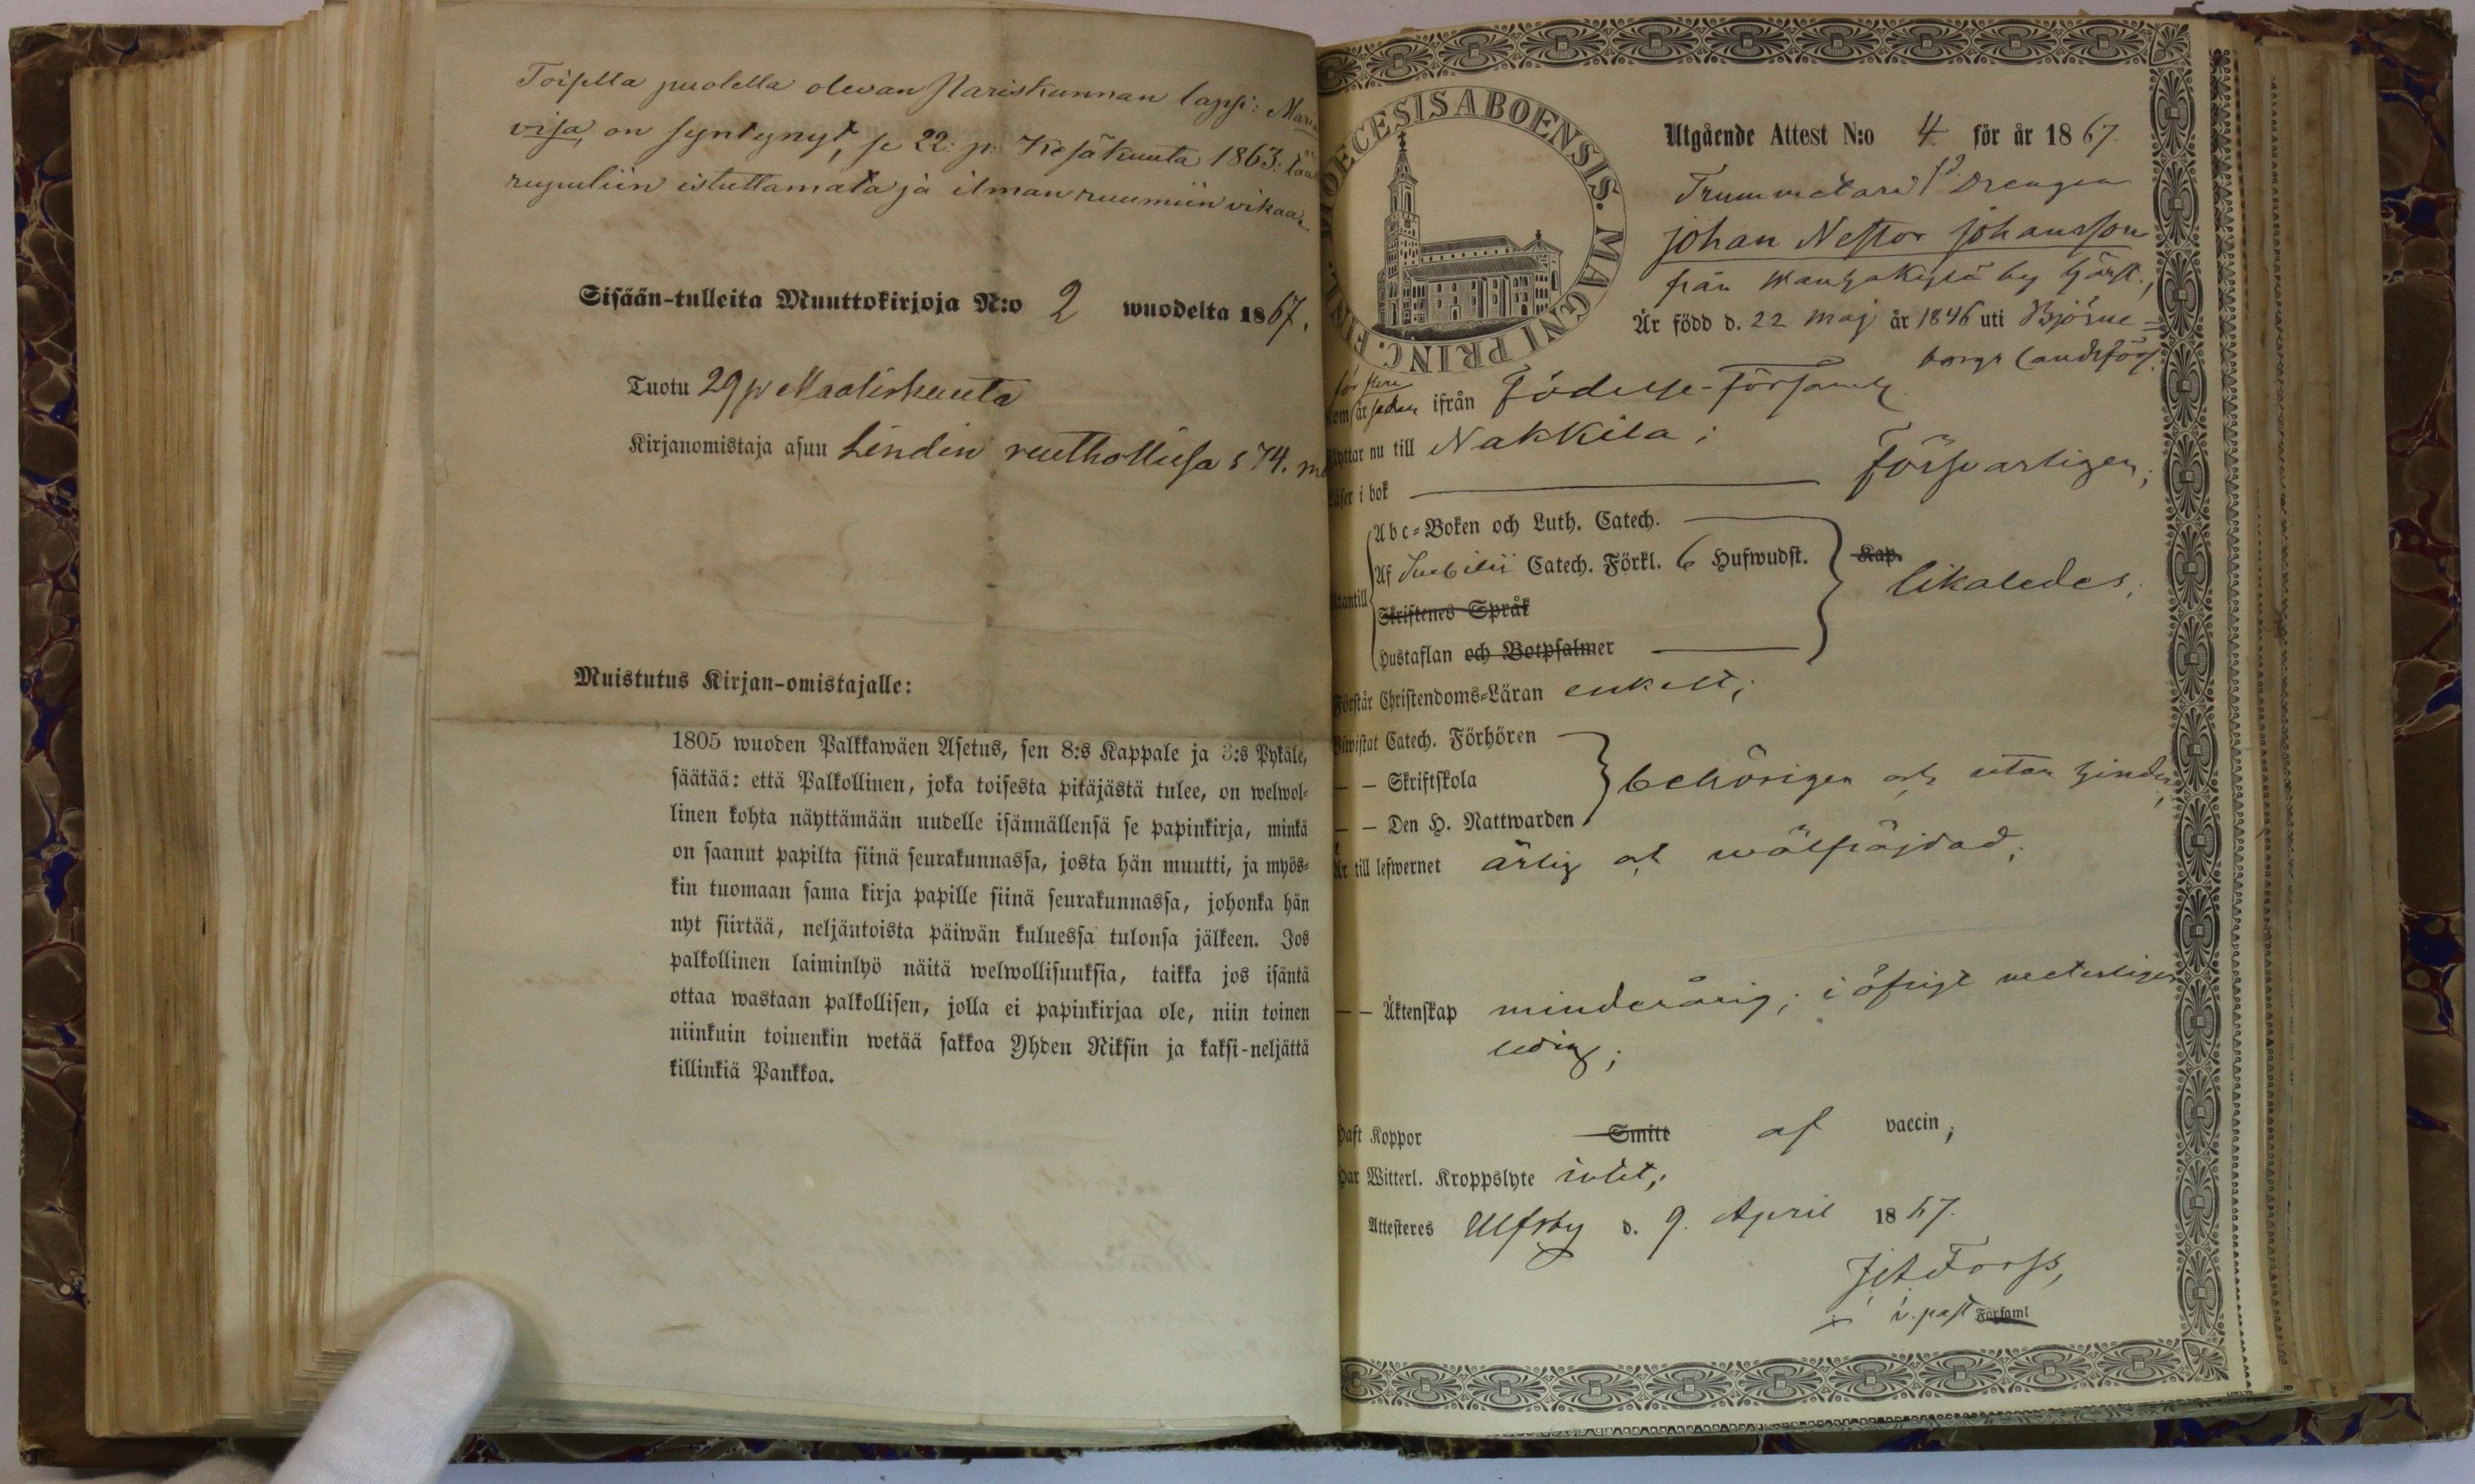 Toisella puolella olevan Pariskunnan lapsi: Maria
visa, on syntynyt, se 22: p: Kesäkuuta 1863.
rupuliin istuttamata ja ilman ruumiin vikaa
Sisään-tulleita Muuttokirjoja N:o 2 wuodelta 1867.
Tuotu 29 p Maaliskuuta
Kirjanomistaja asuu Lindin rusthollissa s 74.
Muistutus Kirjan-omistajalle:
1805 wuoden Palkkawäen Asetus, sen 8:s Kappale ja 3:s Pykäle,
säätää: että Palkollinen, joka toisesta pitäjästä tulee, on welwol-
linen kohta näyttämään uudelle isännällensä se papinkirja, minkä
on saanut papilta siinä seurakunnassa, josta hän muutti, ja myös-
kin tuomaan sama kirja papille siinä seurakunnassa, johonka hän
nyt siirtää, neljäntoista päiwän kuluessa tulonsa jälkeen. Jos
palkollinen laiminlyö näitä welwollisuuksia, taikka jos isäntä
ottaa wastaan palkollisen, jolla ei papinkirjaa ole, niin toinen
niinkuin toinenkin wetää sakkoa Yhden Riksin ja kaksi-neljättä
killinkiä Pankkoa.
DIOECESIS ABOENSIS. MAGNI PRINC. FINL.
Utgående Attest N:o 4 för år 1867.
Drengen
Johan Nestor Johansson
från by
Är född d. 22 Maj år 1846 uti Björne-
borgs Landsförs.
för flere
Kom år sedan ifrån Födelse-Församl.
Flyttar nu till Nakkila;
Läser i bok Försvarligen;
Utantill
Abc-Boken och Luth. Catech.
Af Svebilii Catech. Förkl. 6 Hufwudst. Kap.
likaledes;
Skriftenes Språk
Hustaflan och Botpsalmer
Förstår Christendoms-Läran enkelt;
Biwistat Catech. Förhören
— — Skriftskola behörigen och utan hinder;
— — Den H. Nattwarden
Är till lefwernet ärlig och wälfräjdad;
— — Äktenskap minderårig; i öfrigt veterligen
ledig;
Haft Koppor Smitt af vaccin;
Har Witterl. Kroppslyte intet;
Attesteres Ulfsby d. 9. April 1867.
Forss,
v. past. Församl